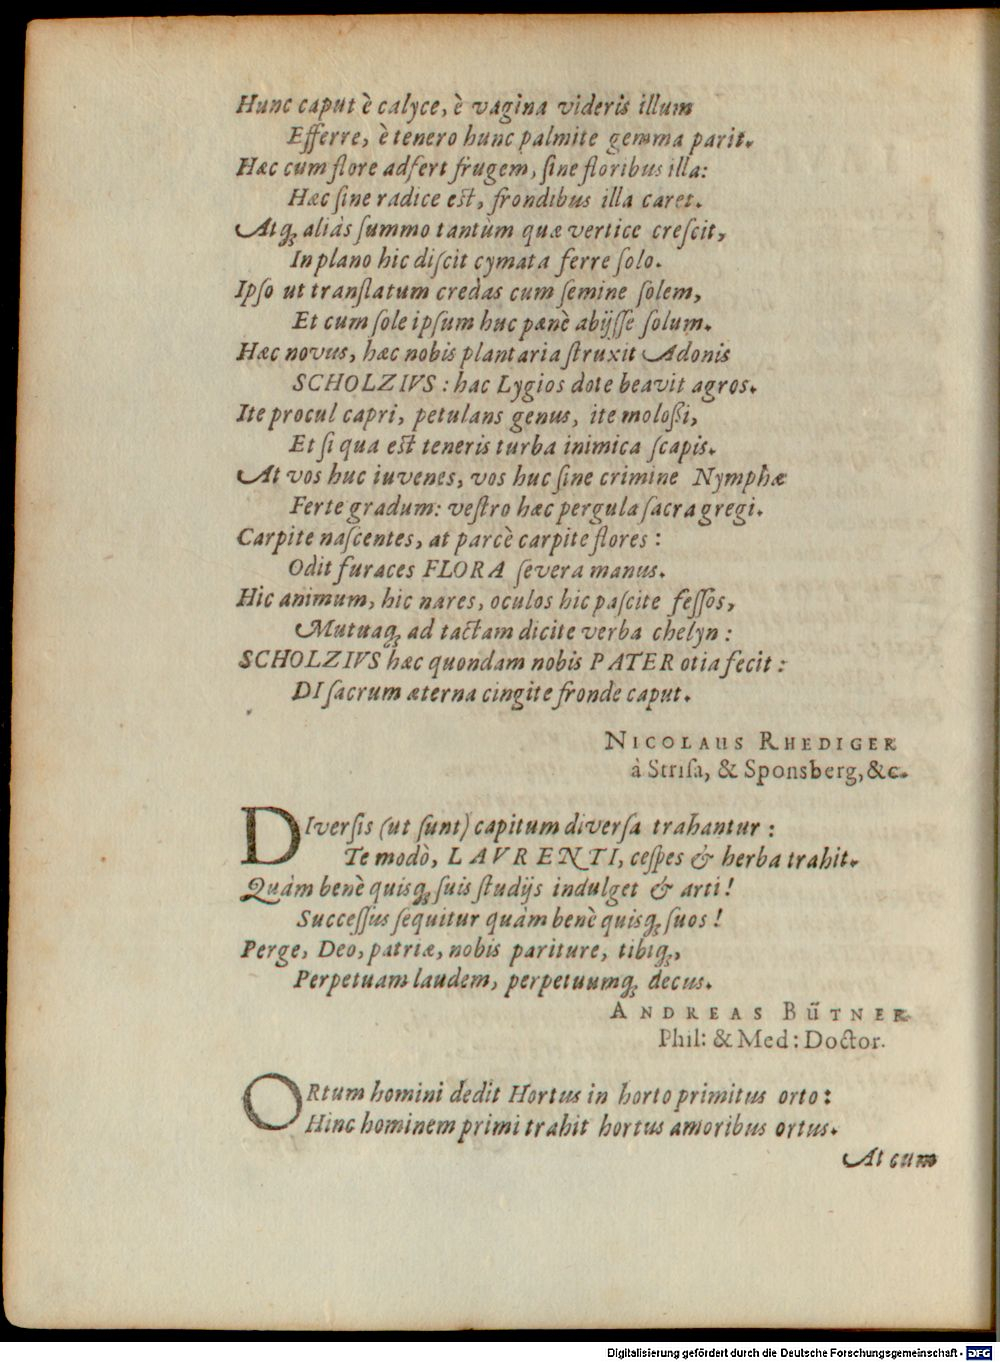 Hunc caput è calyce, è vagina videris illum
Efferre, è tenero hunc palmite gemma parit.
Hæc cum flore adfert frugem, ſine floribus illa:
Hæc ſine radice eſt, frondibus illa caret.
Atq́; aliàs ſummo tantùm quæ vertice creſcit,
In plano hic diſcit cymata ferre ſolo.
Ipſo ut tranſlatum credas cum ſemine ſolem,
Et cum ſole ipſum huc pænè abijſſe ſolum.
Hæc novus, hæc nobis plantaria ſtruxit Adonis
SCHOLZIVS: hac Lygios dote beavit agros.
Ite procul capri, petulans genus, ite moloßi,
Et ſi qua eſt teneris turba inimica ſcapis.
At vos huc iuvenes, vos huc ſine crimine Nymphæ
Ferte gradum: veſtro hæc pergula ſacra gregi.
Carpite naſcentes, at parcè carpite flores:
Odit furaces FLORA ſevera manus.
Hic animum, hic nares, oculos hic paſcite feſſos,
Mutuaq́; ad tactam dicite verba chelyn:
SCHOLZIVS hæc quondam nobis PATER otia fecit:
DI ſacrum æterna cingite fronde caput.
NICOLAUS RHEDIGER
à Striſa, & Sponsberg, &c.
DIverſis (ut ſunt) capitum diverſa trahantur:
Te modò, LAVRENTI, ceſpes & herba trahit.
Quàm benè quisq́; ſuis ſtudijs indulget & arti!
Succeſſus ſequitur quàm benè quisq́; ſuos!
Perge, Deo, patriæ, nobis pariture, tibiq́;,
Perpetuam laudem, perpetuumq́; decus.
ANDREAS BÜTNER
Phil: & Med: Doctor.
ORtum homini dedit Hortus in horto primitus orto:
Hinc hominem primi trahit hortus amoribus ortus.
At cum
Digitalisierung gefördert durch die Deutsche Forschungsgemeinschaft - DFG